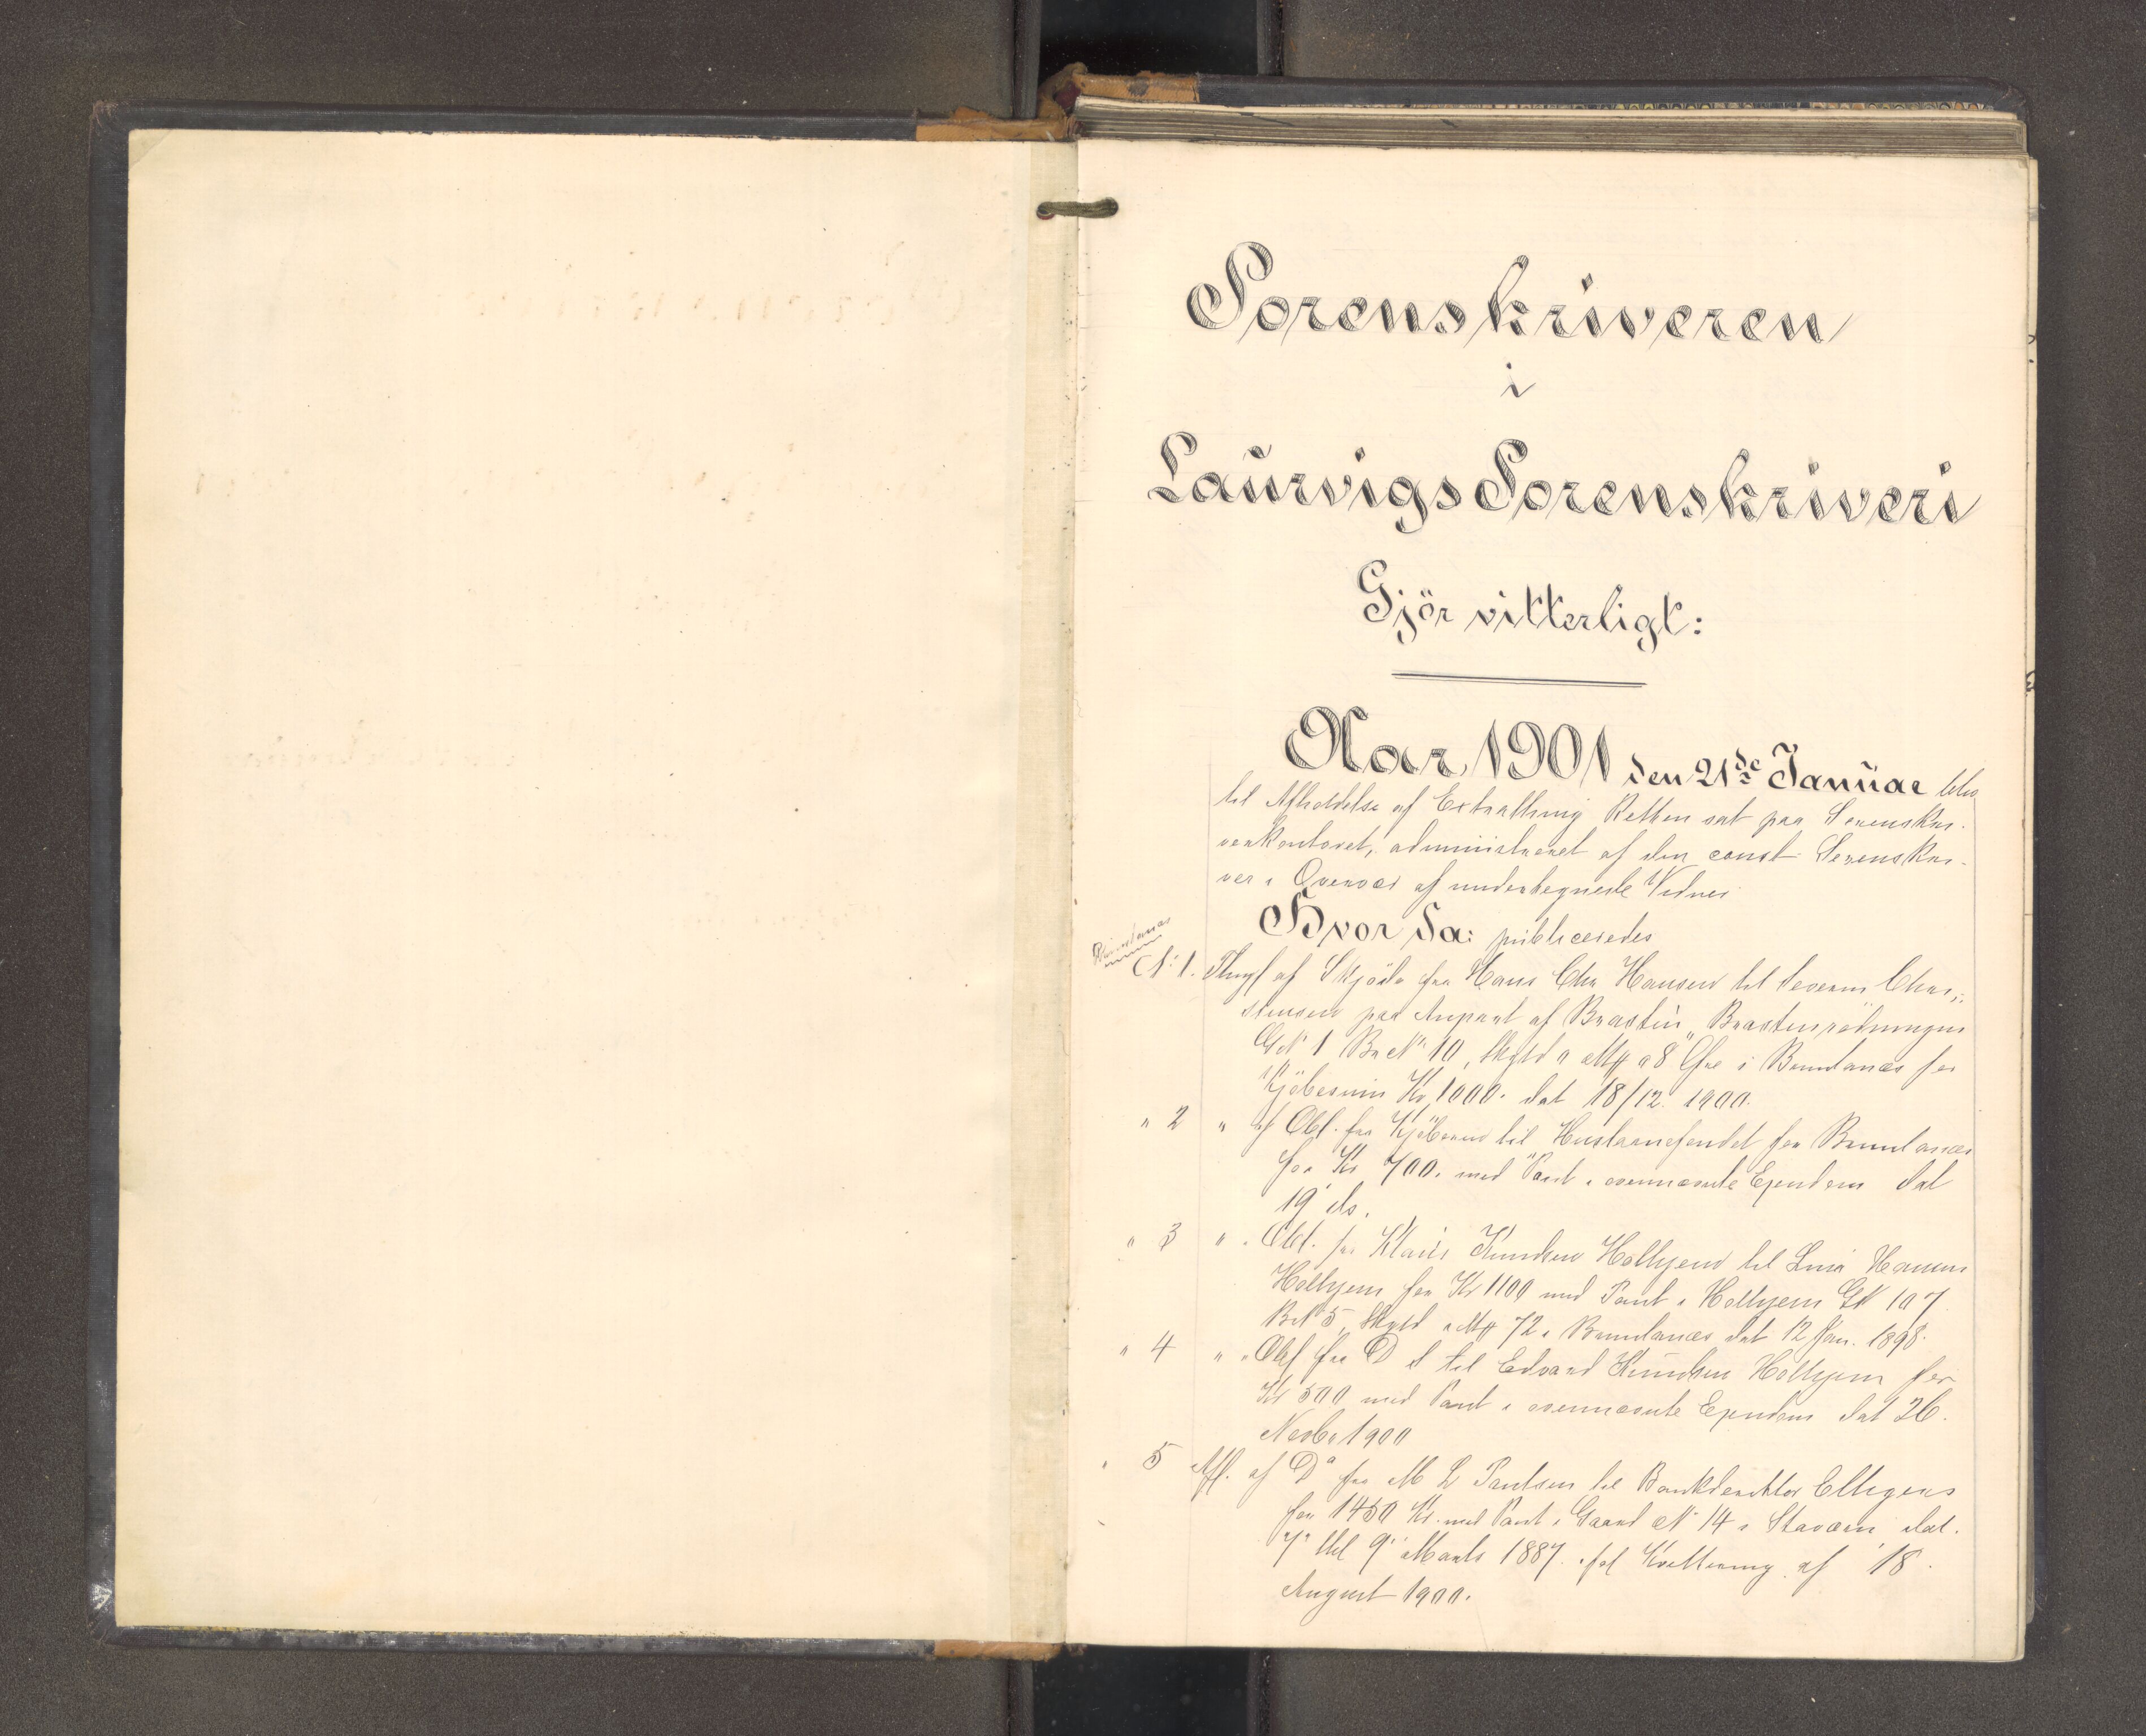 Sorenskriveren
i
Laurvigs Sorenskriveri
Gjör vitterligt:
Aar 1901 den 21de Januar blev
til Afholdelse af Extrathing Retten sat paa Sorenskri-
verkontoret, administreret af den const. Sorenskri-
ver i Overvær af undertegnede Vidner
Hvor da: publiceredes
Brunlanæs
No 1. Thingl af Skjöde fra Hans Chr Hansen til Severin Chri-
stensen paa Anpart af "Brastenrödningen"
GNo 1 BrNo 10, Skyld 8 Öre i Brunlanæs for
Kjöbesum Kr 1000. dat 18/12. 1900.
" 2 " af Obl. fra Kjöberen til for Brunlanæs
for Kr 700. med Pant i ovennævnte Ejendom dat
19 ds.
" 3 " " Obl. fra Knudsen Holtjem til Hansen
Holtjem for Kr 1100 med Pant i Holtjem GN 107
BN 5, Skyld 72 i Brunlanæs dat 12 Jan. 1898.
" 4 " " Obl fra D s til Edvard Knudsen Holtjem for
Kr 500 med Pant i ovennævnte Ejendom dat 26.
Novbr 1900
" 5 Afl. af Do fra M L Paulsen til Bankdirektör
for 1450 Kr. med Pant i Gaard No 14 i Staværn dat.
7 9 Marts 1887. Kvittering af 18.
August 1900.